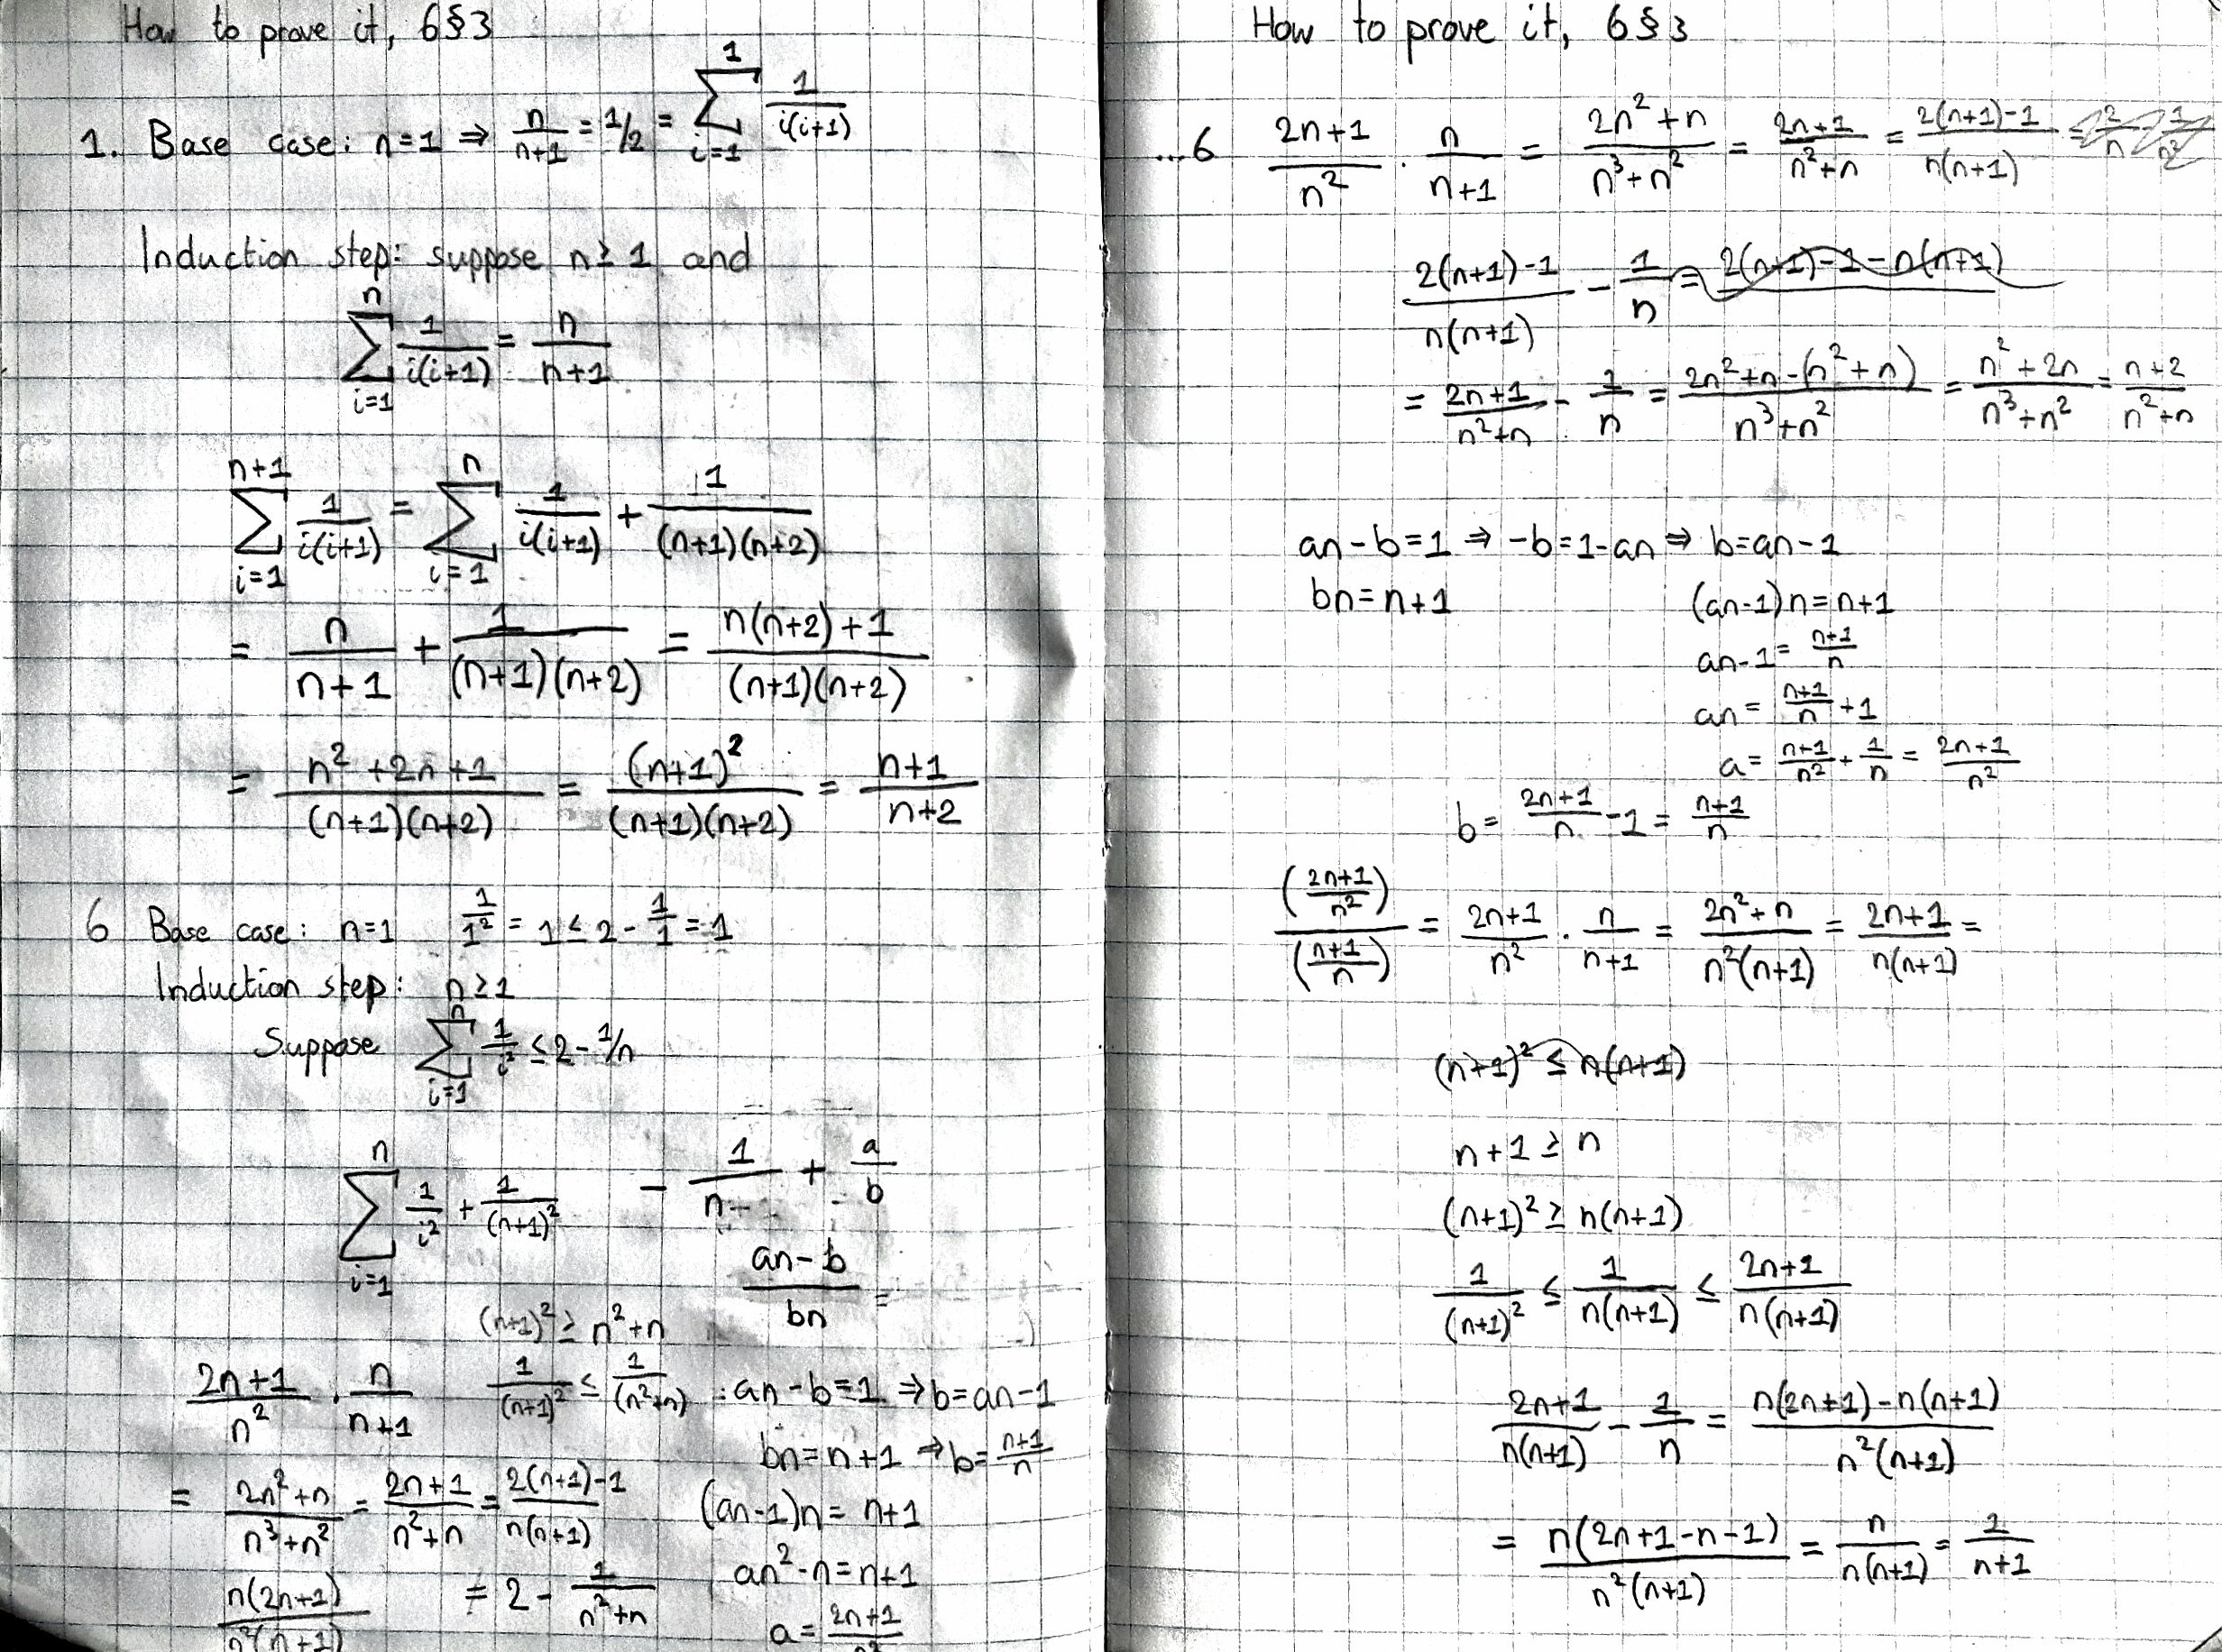 How to prove it, 6§3
1. Base case: n=1 ⇒ n/(n+1) = 1/2 = ∑_{i=1}^{1} 1/(i(i+1))
Induction step: suppose n≥1 and
∑_{i=1}^{n} 1/(i(i+1)) = n/(n+1)
∑_{i=1}^{n+1} 1/(i(i+1)) = ∑_{i=1}^{n} 1/(i(i+1)) + 1/((n+1)(n+2))
= n/(n+1) + 1/((n+1)(n+2)) = (n(n+2)+1)/((n+1)(n+2))
= (n²+2n+1)/((n+1)(n+2)) = (n+1)²/((n+1)(n+2)) = (n+1)/(n+2)
6 Base case: n=1 1/1² = 1 ≤ 2 - 1/1 = 1
Induction step: n≥1
Suppose ∑_{i=1}^{n} 1/i² ≤ 2 - 1/n
∑_{i=1}^{n} 1/i² + 1/(n+1)²
- 1/n + a/b
(an-b)/(bn) =
(n+1)² ≥ n²+n
1/(n+1)² ≤ 1/(n²+n)
(2n+1)/n² · n/(n+1)
= (2n²+n)/(n³+n²) = (2n+1)/(n²+n) = (2(n+1)-1)/(n(n+1))
n(2n+1)/(n²(n+1))
≠ 2 - 1/(n²+n)
an-b=1 ⇒ b=an-1
bn=n+1 ⇒ b=(n+1)/n
(an-1)n = n+1
an²-n=n+1
a = (2n+1)/n²
How to prove it, 6§3
...6 (2n+1)/n² · n/(n+1) = (2n²+n)/(n³+n²) = (2n+1)/(n²+n) = (2(n+1)-1)/(n(n+1))
(2(n+1)-1)/(n(n+1)) - 1/n = 2(n+1)-1-n(n+1)
= (2n+1)/(n²+n) - 1/n = (2n²+n-(n²+n))/(n³+n²) = (n²+2n)/(n³+n²) = (n+2)/(n²+n)
an-b=1 ⇒ -b=1-an ⇒ b=an-1
bn=n+1
(an-1)n=n+1
an-1 = (n+1)/n
an = (n+1)/n + 1
a = (n+1)/n² + 1/n = (2n+1)/n²
b = (2n+1)/n - 1 = (n+1)/n
((2n+1)/n²)/((n+1)/n) = (2n+1)/n² · n/(n+1) = (2n²+n)/(n²(n+1)) = (2n+1)/(n(n+1)) =
(n+1)² ≤ n(n+1)
n+1 ≥ n
(n+1)² ≥ n(n+1)
1/(n+1)² ≤ 1/(n(n+1)) ≤ (2n+1)/(n(n+1))
(2n+1)/(n(n+1)) - 1/n = (n(2n+1)-n(n+1))/(n²(n+1))
= n(2n+1-n-1)/(n²(n+1)) = n/(n(n+1)) = 1/(n+1)